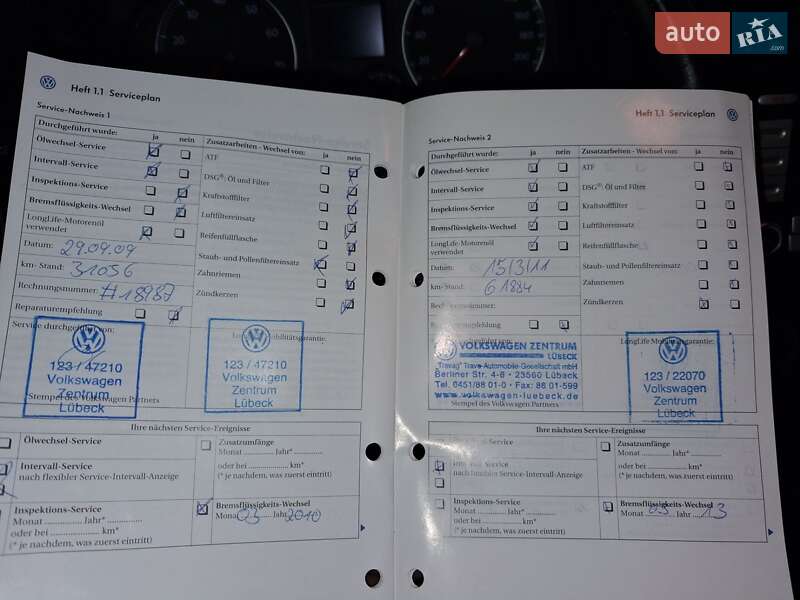 auto RIA
Heft 1.1 Serviceplan
Service-Nachweis 1
Durchgeführt wurde: ja nein
Ölwechsel-Service
Intervall-Service
Inspektions-Service
Bremsflüssigkeits-Wechsel
LongLife-Motorenöl
verwendet
Datum: 29.09.09
km-Stand: 31056
Rechnungsnummer: #18987
Reparaturempfehlung
Service durchgeführt von:
Zusatzarbeiten - Wechsel von: ja nein
ATF
DSG®: Öl und Filter
Kraftstofffilter
Luftfiltereinsatz
Reifenfüllflasche
Staub- und Pollenfiltereinsatz
Zahnriemen
Zündkerzen
LongLife Mobilitätsgarantie:
123 / 47210
Volkswagen
Zentrum
Lübeck
Stempel des Volkswagen Partners
123 / 47210
Volkswagen
Zentrum
Lübeck
Ihre nächsten Service-Ereignisse
Ölwechsel-Service
Intervall-Service
nach flexibler Service-Intervall-Anzeige
Inspektions-Service
Monat Jahr*
oder bei km*
(* je nachdem, was zuerst eintritt)
Zusatzumfänge
Monat Jahr*
oder bei km*
(* je nachdem, was zuerst eintritt)
Bremsflüssigkeits-Wechsel
Monat 03 Jahr 2010
Heft 1.1 Serviceplan
Service-Nachweis 2
Durchgeführt wurde: ja nein
Ölwechsel-Service
Intervall-Service
Inspektions-Service
Bremsflüssigkeits-Wechsel
LongLife-Motorenöl
verwendet
Datum: 15/3/11
km-Stand: 61884
Rechnungsnummer:
Reparaturempfehlung
Zusatzarbeiten - Wechsel von: ja nein
ATF
DSG®: Öl und Filter
Kraftstofffilter
Luftfiltereinsatz
Reifenfüllflasche
Staub- und Pollenfiltereinsatz
Zahnriemen
Zündkerzen
LongLife Mobilitätsgarantie:
VOLKSWAGEN ZENTRUM
LÜBECK
"Travag" Trave-Automobile-Gesellschaft mbH
Berliner Str. 4-6 • 23560 Lübeck
Tel. 0451/88 01-0 • Fax: 86 01-599
www.volkswagen-luebeck.de
Stempel des Volkswagen Partners
123 / 22070
Volkswagen
Zentrum
Lübeck
Ihre nächsten Service-Ereignisse
Service
Intervall-Service
nach flexibler Service-Intervall-Anzeige
Inspektions-Service
Monat Jahr*
oder bei km*
(* je nachdem, was zuerst eintritt)
Zusatzumfänge
Monat Jahr*
oder bei km*
(* je nachdem, was zuerst eintritt)
Bremsflüssigkeits-Wechsel
Monat 03 Jahr 13